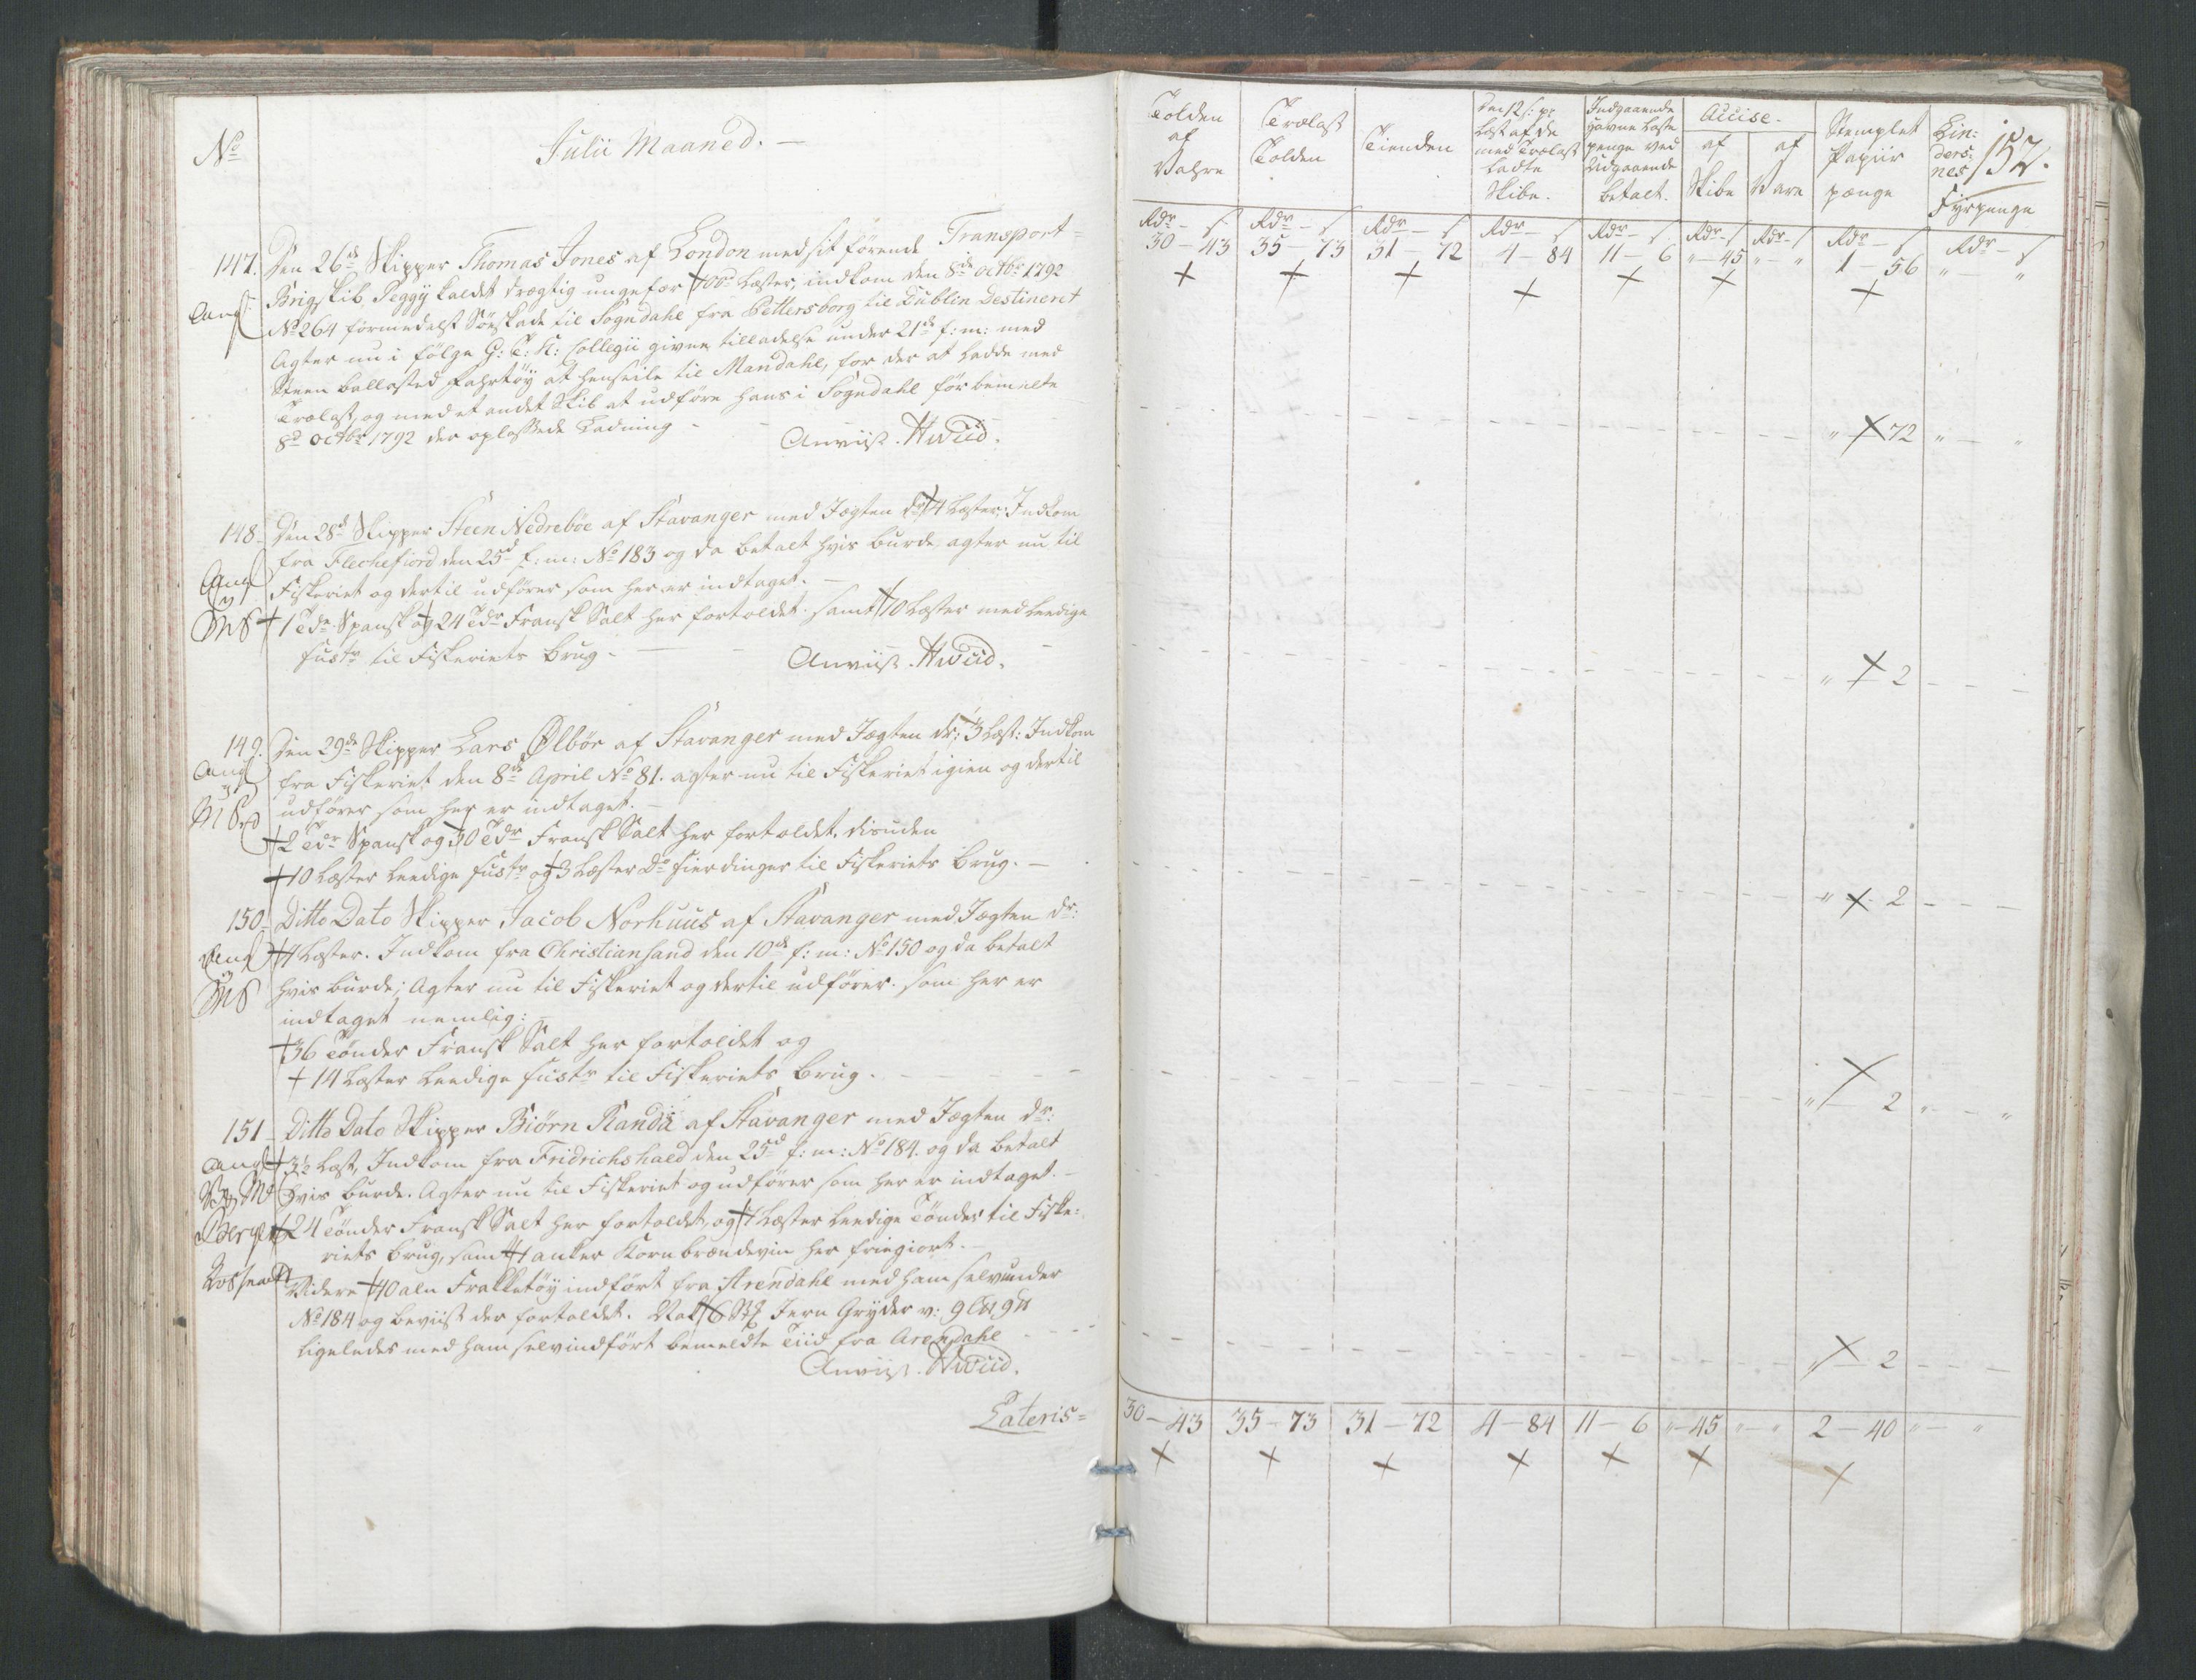 No
Julii Maaned. —
Transport =
147. Den 26de Skipper Thomas Jones af London med sit förende
Brigskib Peggÿ kaldet drægtig ungefær 100 Læster, indkom den 8de octbr 1792
Ang:
No 264 formedelst Söeskade til Sogndahl fra Pettersborg til Dublin Destineret
Agter nu i följe G: T: K: Collegii givne tilladelse under 21de h: m: med
Steen ballasted Fahrtöy at henseile til Mandahl, for der at ladde med
Trælast, og med et andet Skib at udföre hans i Sogndahl förbemelte
8de octbr 1792 der oplossede Ladning -
Anviist. Hwiid.
148. Den 28de Skipper Steen Nedreböe af Stavanger med Jægten dr: 4 Læster, Indkom
fra Flechefiord den 25de h: m: No 183 og da betalt hvis burde, agter nu til
Ang
Fiskeriet og dertil udförer som her er indtaget. —
MS
1 Tde Spansk og 24 Tdr Fransk Salt her fortoldet. samt 10 Læster med Leedige
fustr til Fiskeriets brug. —
Anviist. Hwiid.
149. Den 29de Skipper Lars Ølbör af Stavanger med Jægten dr: 3 Læst: Indkom
Ang
fra Fiskeriet den 8de April No 81. agter nu til Fiskeriet igien og dertil
udförer som her er indtaget. —
2 Tdr Spansk og 30 Tdr Fransk Salt her fortoldet, desuden
10 Læster Leedige fustr og 3 Læster Do fierdinger til Fiskeriets brug. —
150. Ditto Dato Skipper Jacob Norhuus af Stavanger med Jægten dr:
Ang
4 Læster. Indkom fra Christiansand den 10de h: m: No 150 og da betalt
MS
hvis burde; Agter nu til Fiskeriet og dertil udförer. som her er
indtaget nemlig: —
36 Tönder Fransk Salt her fortoldet og
14 Læster Leedige fustr til Fiskeriets brug. —
151 Ditto Dato Skipper Biörn Randa af Stavanger med Jægten dr:
Ang
3½ Læst, Indkom fra Fridrichshald den 25de h: m: No 184. og da betalt
hvis burde. Agter nu til Fiskeriet og udförer som her er indtaget. —
Berge
24 Tönder Fransk Salt her fortoldet, og 7 Læster Leedige Tönder til Fiske:
riets brug, samt 1 anker Kornbrændeviin her friegiort. —
Videre 40 aln Frakketöy indfört fra Arendahl med ham selv under
No 184 og beviist der fortoldet. Nok 6 Stk Jern Grÿder v:
ligeledes med ham selv indfört bemeldte Tiid fra Arendahl
Anviist. Hwiid.
Lateris =
Tolden af Vahre
Trælast Tolden
Tienden
Den 12 s: pr Læst af de med Trælast ladte Skibe.
Indgaaende Havne Laste penge ved Udgaaende betalt.
Accise.
af Skibe
af Vare
Stemplet Papiir pænge
Lin: ders: nes Fyrpenge
152.
Rdr — s Rdr — s Rdr — s Rdr — s Rdr — s Rdr — s Rdr — s Rdr — s Rdr — s
30 — 43 35 — 73 31 — 72 4 — 84 11 — 6 „ — 45 „ — „ 1 — 56 „ — „
„ — 72 „ — „
„ — 2 — — —
„ — 2 — — —
„ — 2 „ — „
„ — 2 — — —
30 — 43 35 — 73 31 — 72 4 — 84 11 — 6 „ — 45 „ — „ 2 — 40 „ — „